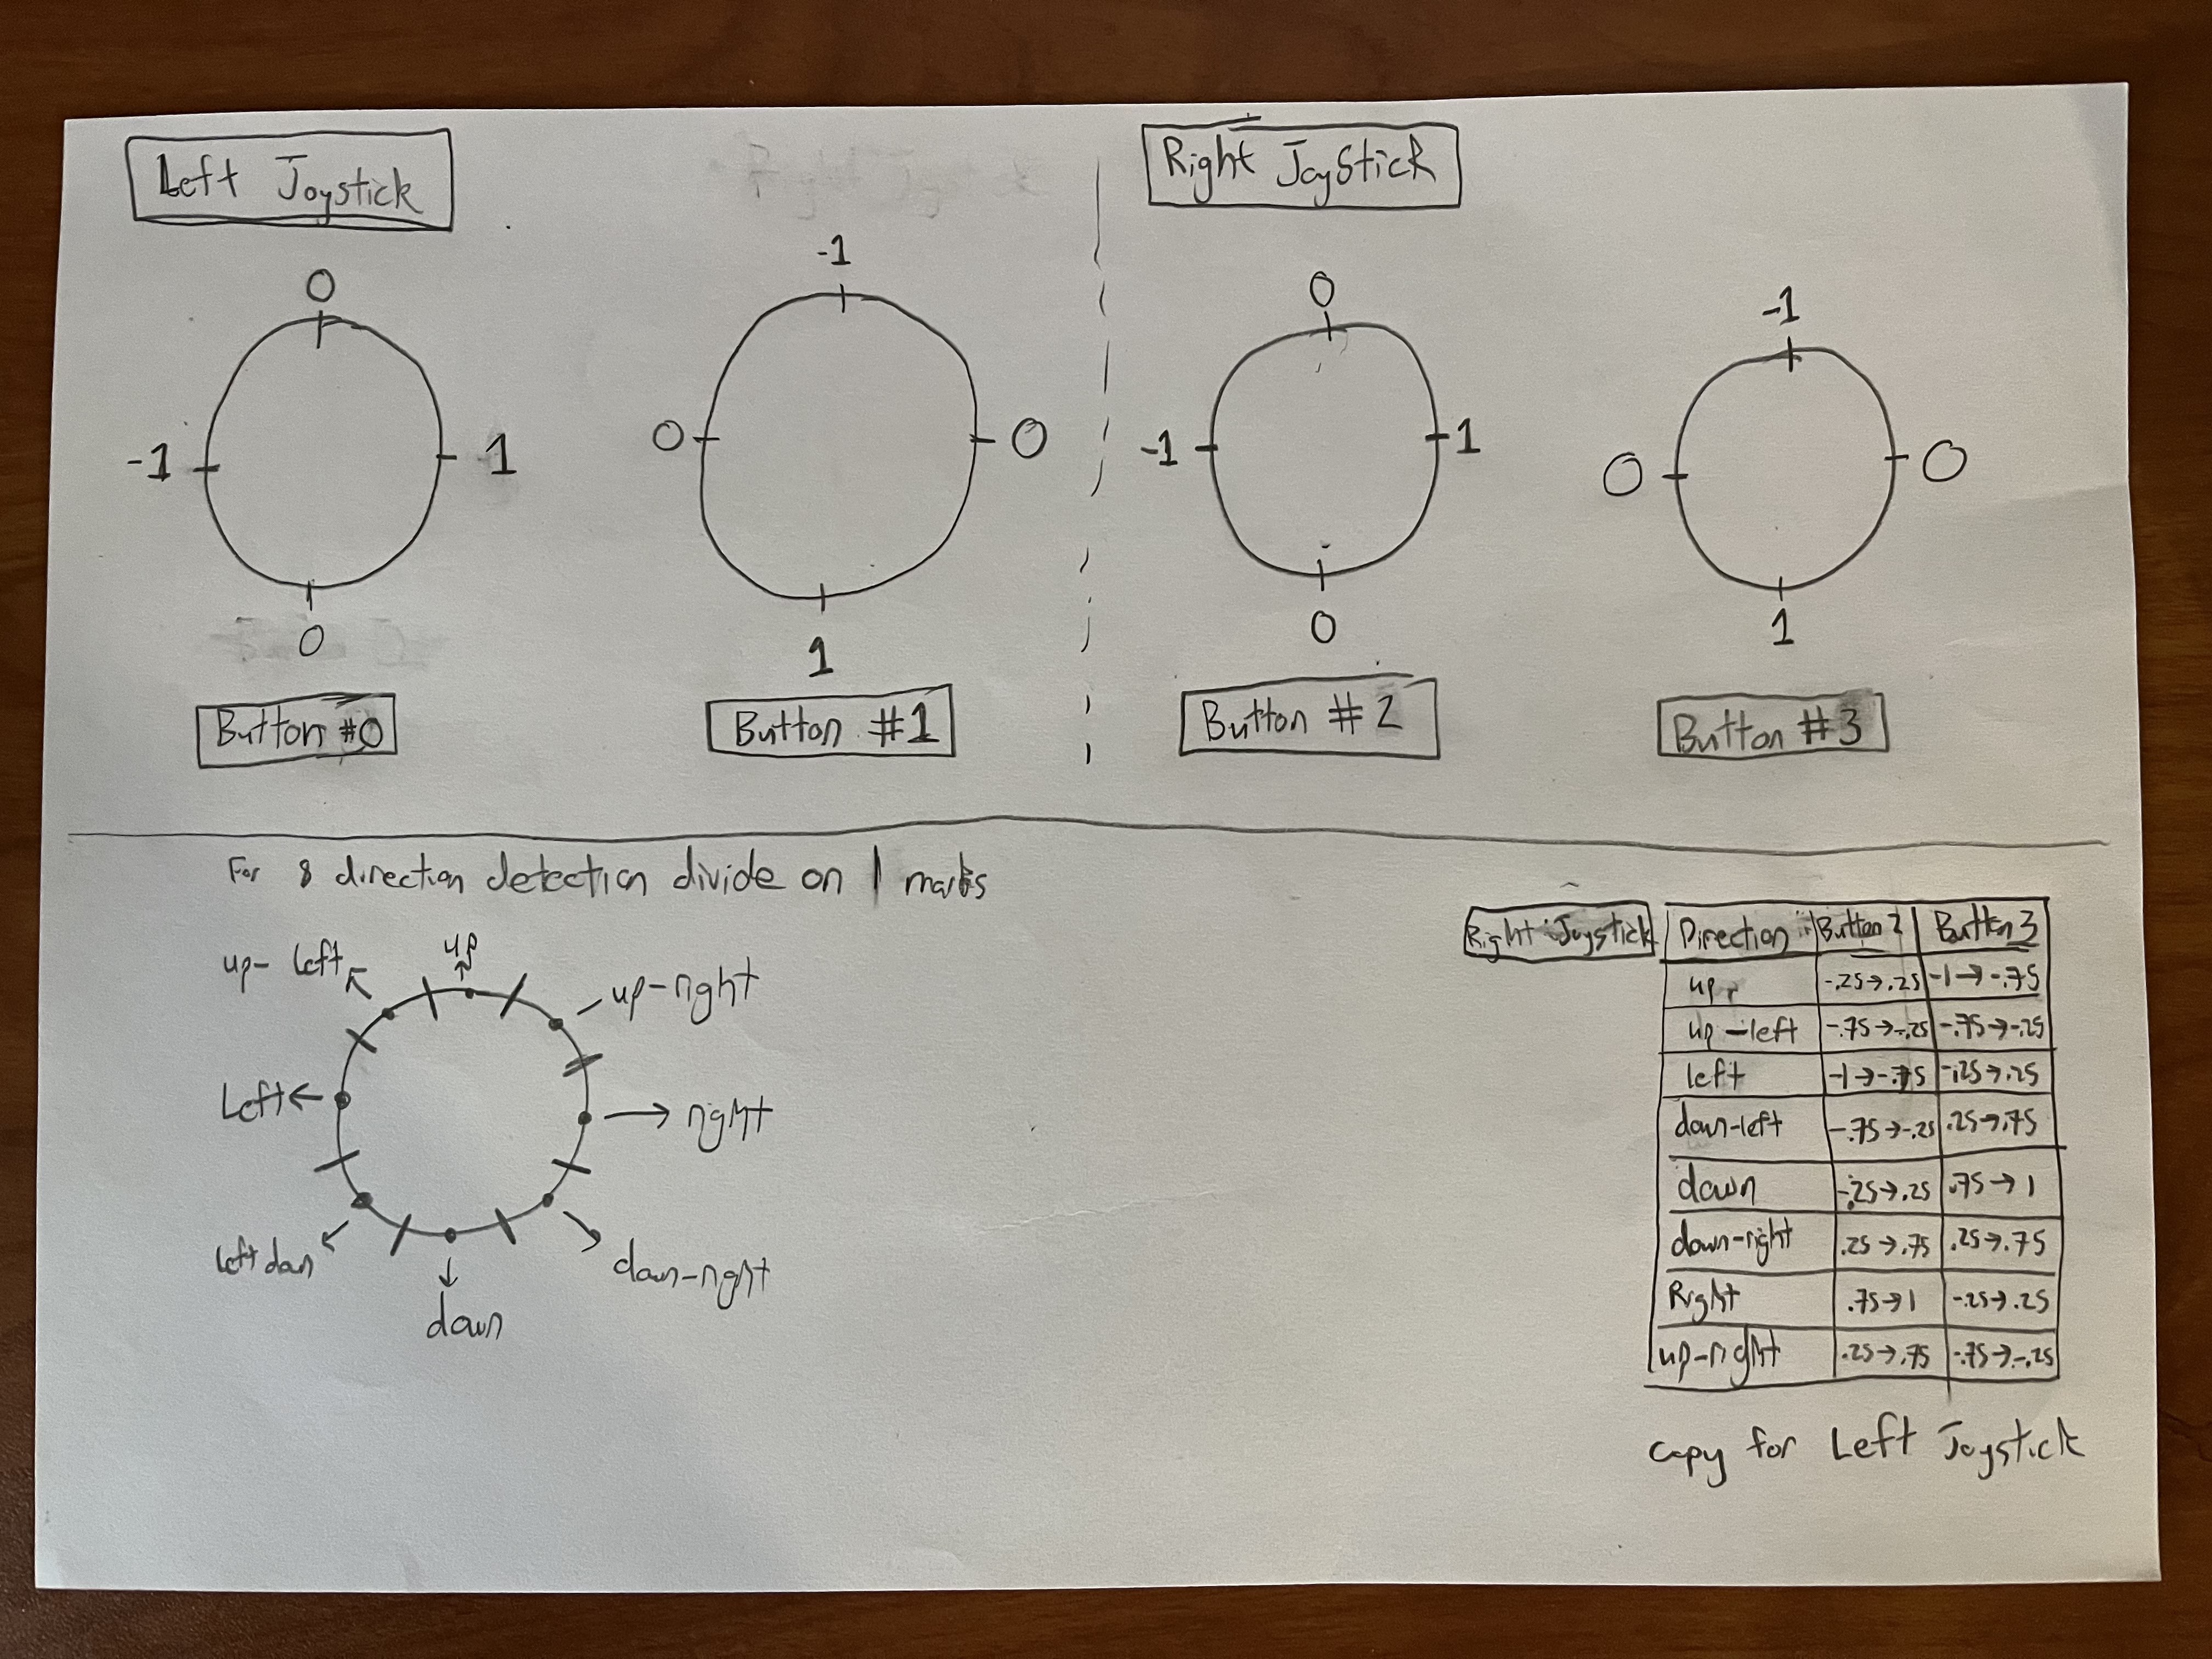 Left Joystick
0
-1
1
0
Button #0
-1
0
0
1
Button #1
Right Joystick
0
-1
1
0
Button #2
-1
0
0
1
Button #3
For 8 direction detection divide on | marks
up-left
up
up-right
Left
right
left down
down
down-right
Right Joystick
Direction Button 2 Button 3
up -.25→.25 -1→-.75
up-left -.75→-.25 -.75→-.25
left -1→-.75 -.25→.25
down-left -.75→-.25 .25→.75
down -.25→.25 .75→1
down-right .25→.75 .25→.75
Right .75→1 -.25→.25
up-right .25→.75 -.75→-.25
copy for Left Joystick